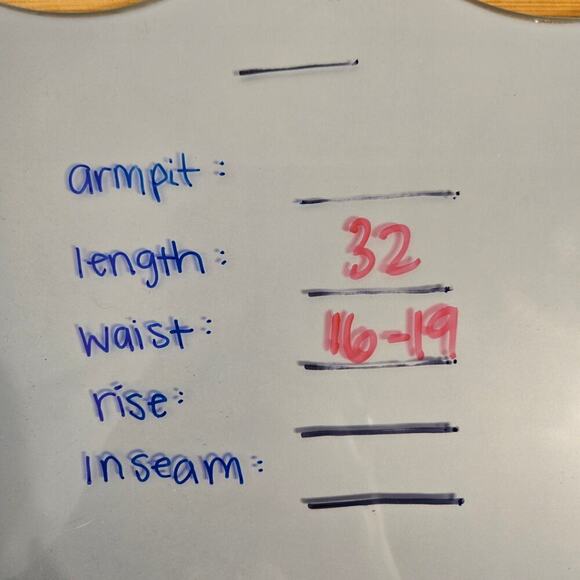 armpit:
length: 32
waist: 16-19
rise:
inseam: